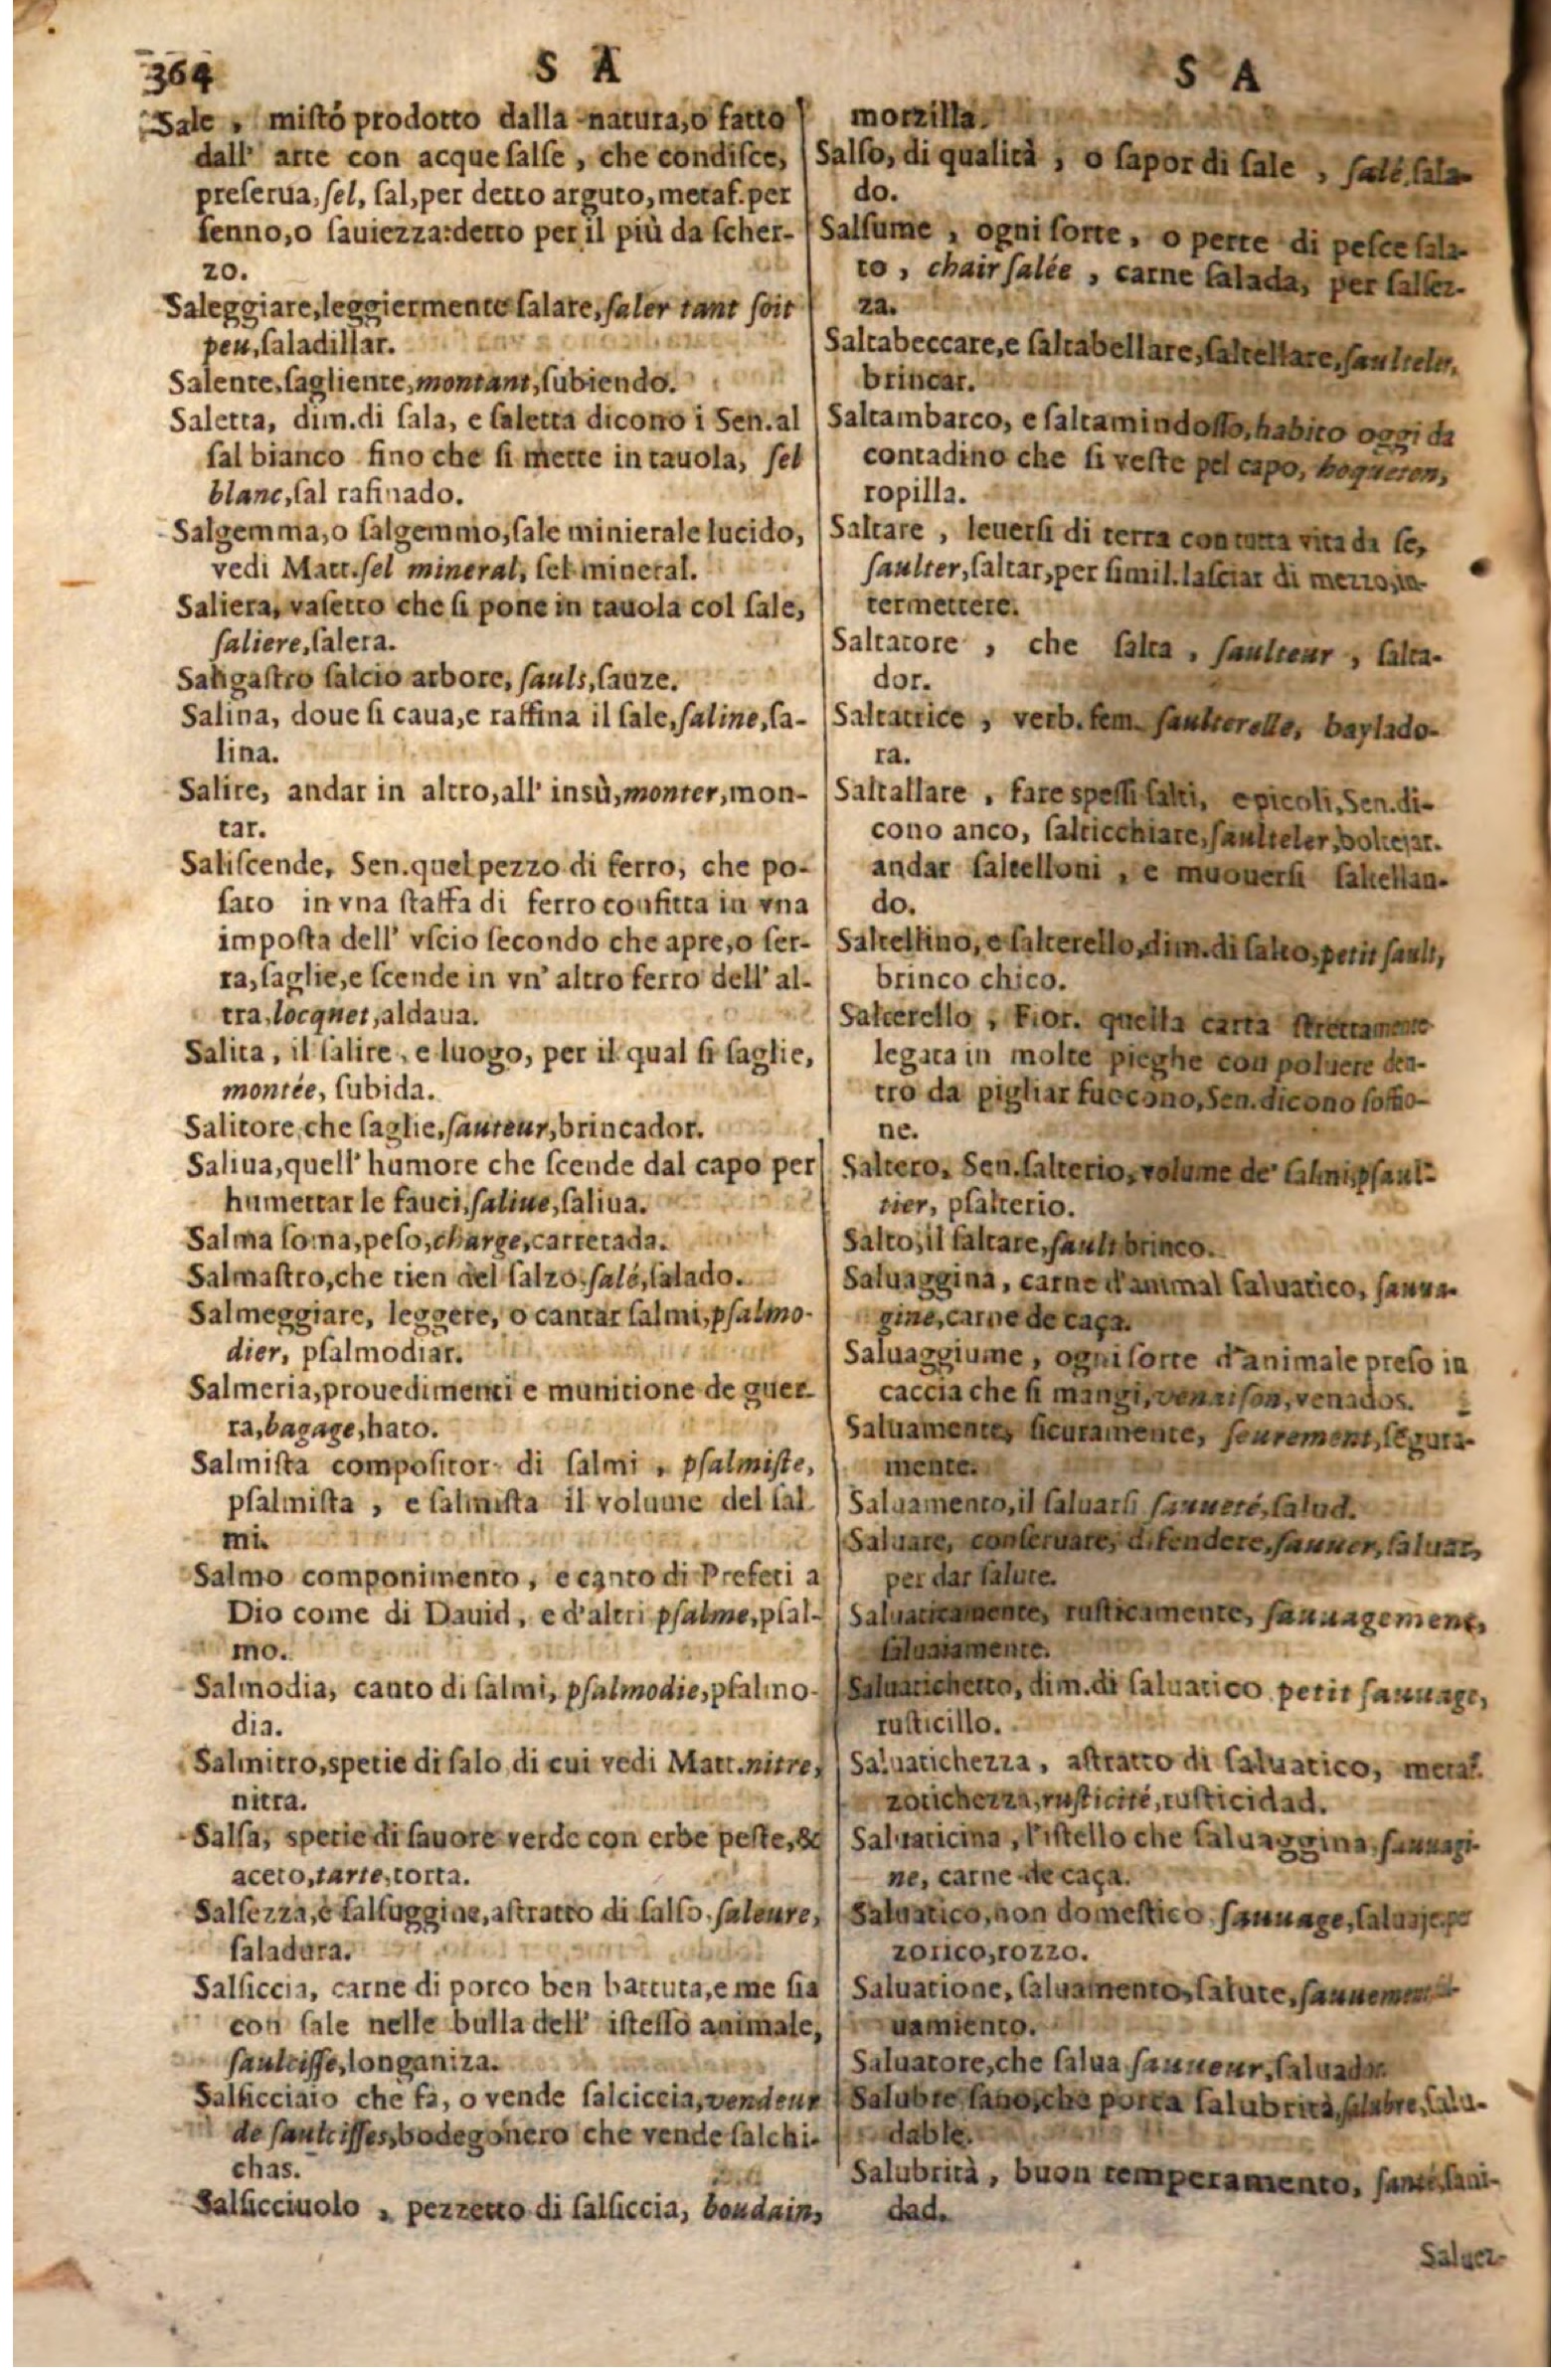 364
S A
Sale, misto prodotto dalla natura,o fatto
dall' arte con acque salse, che condisce,
preserua, sel, sal,per detto arguto, metaf.per
senno,o sauiezza:detto per il più da scher-
zo.
Saleggiare,leggiermente salare, saler tant soit
peu,saladillar.
Salente,sagliente,montant,subiendo.
Saletta, dim.di sala, e saletta dicono i Sen.al
sal bianco fino che si mette in tauola, sel
blanc,sal rafinado.
Salgemma,o salgemmo,sale minierale lucido,
vedi Matt.sel mineral, sel mineral.
Saliera, vasetto che si pone in tauola col sale,
saliere,salera.
Saligastro salcio arbore, sauls,sauze.
Salina, doue si caua,e raffina il sale,saline,sa-
lina.
Salire, andar in altro,all' insù,monter,mon-
tar.
Saliscende, Sen.quel pezzo di ferro, che po-
sato in vna staffa di ferro confitta in vna
imposta dell' vscio secondo che apre,o ser-
ra,saglie,e scende in vn' altro ferro dell' al-
tra,locquet,aldaua.
Salita, il salire, e luogo, per il qual si saglie,
montée, subida.
Salitore che saglie,sauteur,brincador.
Saliua,quell' humore che scende dal capo per
humettar le fauci,saliue,saliua.
Salma soma,peso,charge,carretada.
Salmastro,che tien del salzo.salé,salado.
Salmeggiare, leggere, o cantar salmi,psalmo-
dier, psalmodiar.
Salmeria,prouedimenti e munitione de guer-
ra,bagage,hato.
Salmista compositor di salmi, psalmiste,
psalmista, e salmista il volume del sal
mi.
Salmo componimento, e canto di Profeti a
Dio come di Dauid, e d'altri psalme,psal-
mo.
Salmodia, canto di salmi, psalmodie,psalmo-
dia.
Salnitro,spetie di salo di cui vedi Matt.nitre,
nitra.
Salsa, spetie di sauore verde con erbe peste,&
aceto,tarte,torta.
Salsezza,e salsuggine,astratto di salso.saleure,
saladura.
Salsiccia, carne di porco ben battuta,e me sia
con sale nelle bulla dell' istesso animale,
saulcisse,longaniza.
Salsicciaio che fa, o vende salciccia,vendeur
de saulcisses,bodegonero che vende salchi-
chas.
Salsicciuolo, pezzetto di salsiccia, boudain,
S A
morzilla.
Salso, di qualità, o sapor di sale, salé,sala-
do.
Salsume, ogni sorte, o perte di pesce sala-
to, chair salée, carne salada, per salsez-
za.
Saltabeccare,e saltabellare,saltellare,saulteler,
brincar.
Saltambarco, e saltamindosso,habito oggi da
contadino che si veste pel capo, hoqueton,
ropilla.
Saltare, leuersi di terra con tutta vita da se,
saulter,saltar,per simil.lasciar di mezzo,in-
termettere.
Saltatore, che salta, saulteur, salta-
dor.
Saltatrice, verb.fem. saulterelle, baylado-
ra.
Saltallare, fare spessi salti, e picoli,Sen.di-
cono anco, salticchiare,saulteler,boltejar.
andar saltelloni, e muouersi saltellan-
do.
Saltellino, e salterello,dim.di salto,petit sault,
brinco chico.
Salterello, Fior. quella carta strettamente
legata in molte pieghe con poluere den-
tro da pigliar fuocono,Sen.dicono soffio-
ne.
Saltero, Sen.salterio,volume de' salmi,psaul-
tier, psalterio.
Salto,il saltare,sault brinco.
Saluaggina, carne d'animal saluatico, sauua-
gine,carne de caça.
Saluaggiume, ogni sorte d'animale preso in
caccia che si mangi,venaison,venados.
Saluamente, sicuramente, seurement,segura-
mente.
Saluamento,il saluarsi sauueté,salud.
Saluare, conseruare, difendere,sauuer,saluar,
per dar salute.
Saluaticamente, rusticamente, sauuagement,
saluaiamente.
Saluatichetto, dim.di saluatico petit sauuage,
rusticillo.
Saluatichezza, astratto di saluatico, metaf.
zotichezza,rusticité,rusticidad.
Saluaticina, l'istello che saluaggina sauuagi-
ne, carne de caça.
Saluatico,non domestico sauuage,saluaje.pe
zotico,rozzo.
Saluatione, saluamento,salute,
uamiento.
Saluatore,che salua sauueur,saluador.
Salubre sano,che porta salubrità,salubre,salu-
dable.
Salubrità, buon temperamento, santé,sani-
dad.
Saluez-